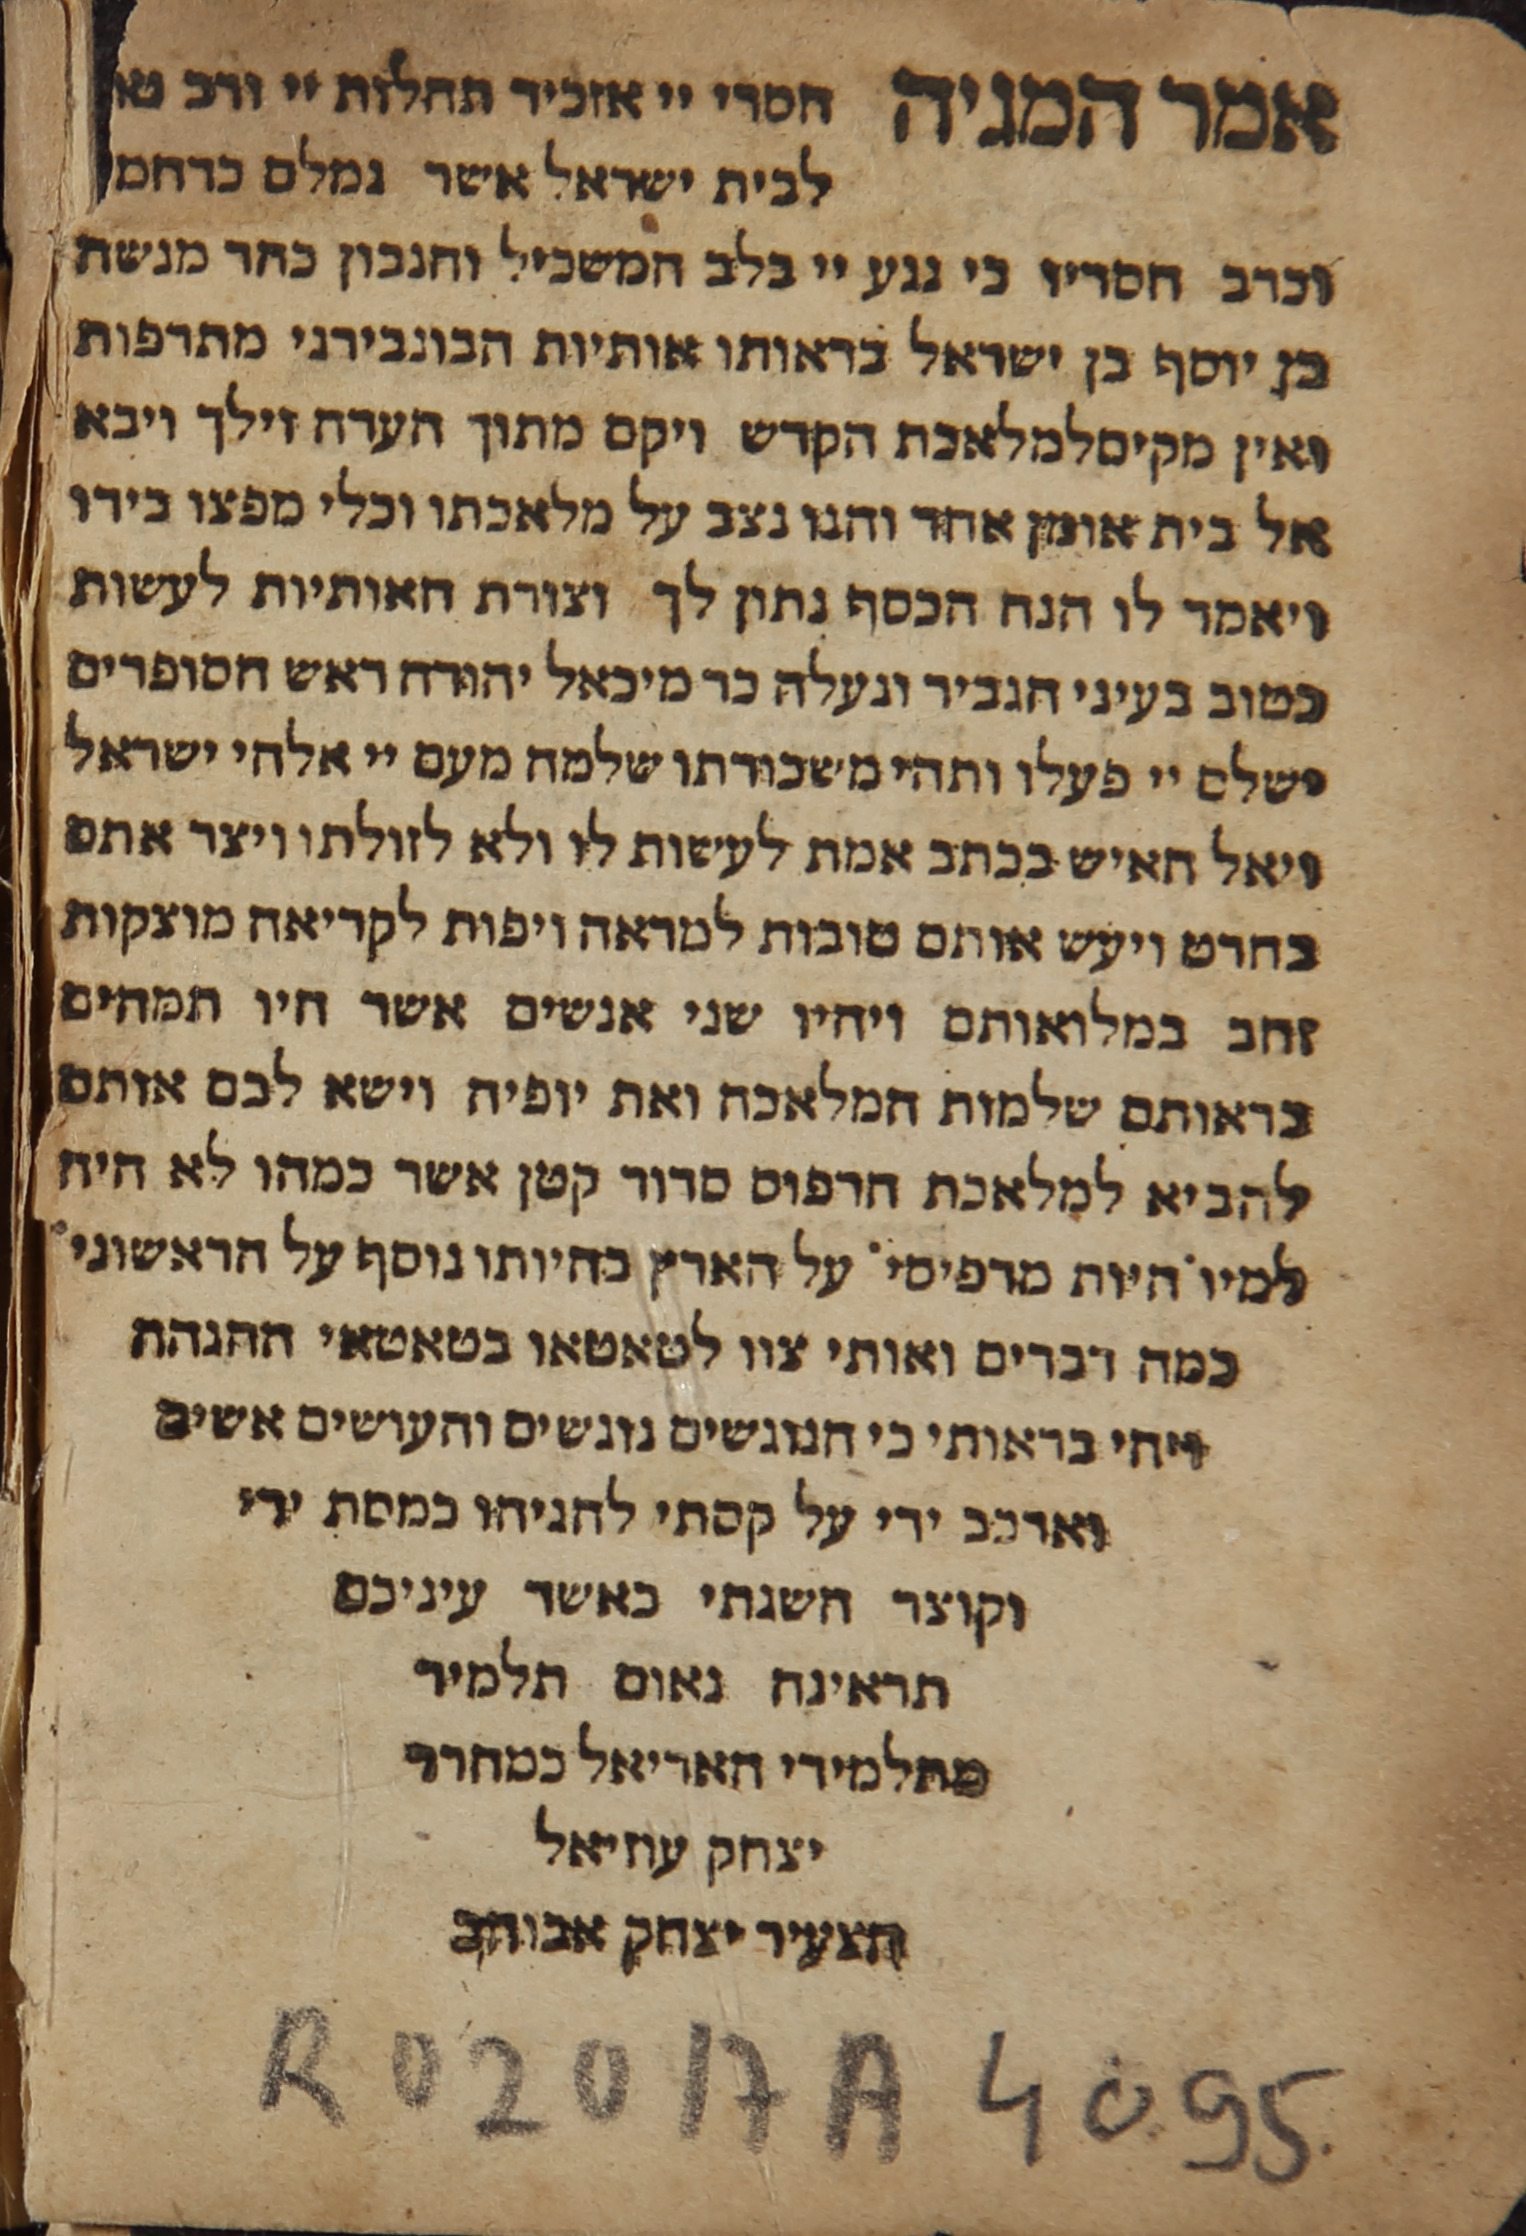 אמר המגיה חסדי יי אזכיר תהלות יי ורב טו
לבית ישראל אשר גמלם כרחמ
וכרב חסדיו כי נגע יי בלב המשכיל והנבון כהר מנשה
בן יוסף בן ישראל בראותו אותיות הבונבירגי מתרפות
ואין מקים למלאכת הקדש ויקם מתוך העדה וילך ויבא
אל בית אומן אחד והנו נצב על מלאכתו וכלי מפצו בידו
ויאמר לו הנה הכסף נתון לך וצורת האותיות לעשות
כטוב בעיני הגביר ונעלה כר מיכאל יהודה ראש הסופרים
ישלם יי פעלו ותהי משכורתו שלמה מעם יי אלהי ישראל
ויאל האיש בכתב אמת לעשות לו ולא לזולתו ויצר אתם
בחרט ויעש אותם טובות למראה ויפות לקריאה מוצקות
זהב במלואותם ויהיו שני אנשים אשר היו תמהים
בראותם שלמות המלאכה ואת יופיה וישא לבם אותם
להביא למלאכת הדפוס סדור קטן אשר כמהו לא היה
למיו׳ היות מדפיסי׳ על הארץ בהיותו נוסף על הראשוני׳
כמה דברים ואותי צוו לטאטאו בטאטאי ההגהה
ויהי בראותי כי הנוגשים נוגשים והעושים אשים
וארכב ידי על קסתי להגיהו כמסת ידי
וקוצר השגתי כאשר עיניכם
תראינה נאום תלמיד
מתלמידי האריאל כמהרר
יצחק עוזיאל
הצעיר יצחק אבוהב
R 0 2 0 17 A 4 0 95.